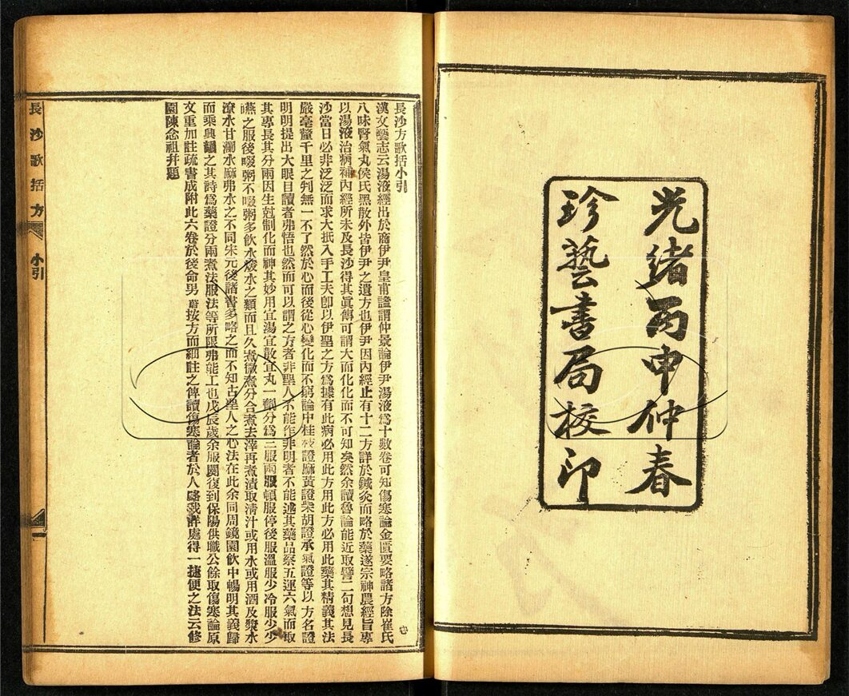 光緒丙申仲春
珍藝書局校印
長沙方歌括小引
漢文藝志云湯液經出於商伊尹皇甫謐謂仲景論伊尹湯液爲十數卷可知傷寒論金匱要略諸方除崔氏
八味腎氣丸侯氏黑散外皆伊尹之遺方也伊尹因內經止有十二方詳於鍼灸而略於藥遂宗神農經旨專
以湯液治病補內經所未及長沙得其眞傳可謂大而化化而不可知矣然余讀魯論能近取譬二句想見長
沙當日必非泛泛而求大抵入手工夫卽以伊聖之方爲據有此病必用此方用此方必用此藥其精義其法
嚴毫釐千里之判無一不了然於心而後從心變化而不窮論中桂枝證麻黃證柴胡證承氣證等以方名證
明明提出大眼目讀者弗悟也然而可以謂之方者非聖人不能作非明者不能述其藥品察五運六氣而取
其專長其分兩因生尅制化而神其妙用宜湯宜散宜丸一劑分爲三服兩服頓服停後服溫服少冷服少少
嚥之服後啜粥不啜粥多飲水煖水之類而且久煮微煮分合煮去滓再煮漬取清汁或用水或用酒及漿水
潦水甘瀾水麻弗水之不同宋元後諸書多略之而不知古聖人之心法在此余同周鏡園飲中暢明其義歸
而乘興韻之其詩爲藥證分兩煮法服法等所限弗能工也戊辰歲余服闋復到保陽供職公餘取傷寒論原
文重加註疏書成附此六卷於後命男 按方而細註之俾讀傷寒論者於人略我詳處得一捷便之法云修
園陳念祖并題
長沙歌括方 小引